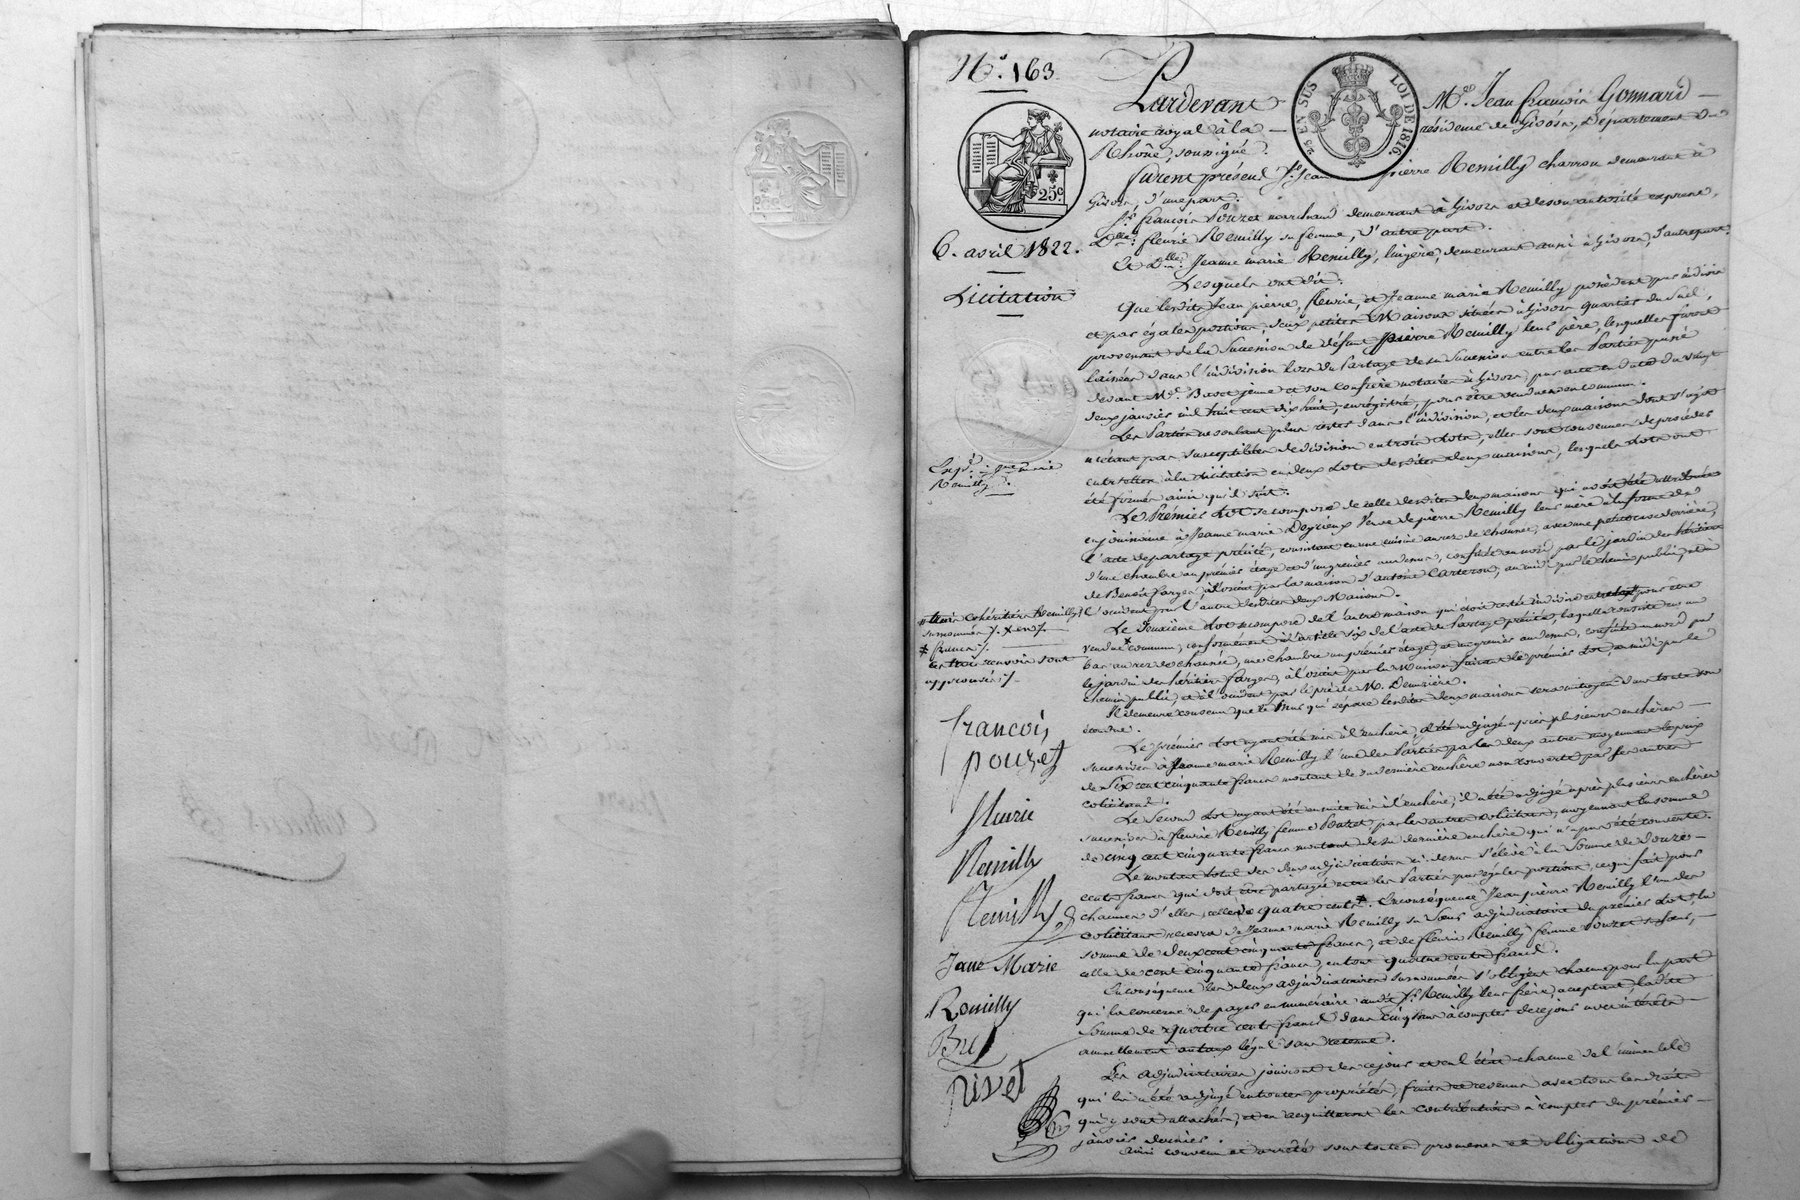 N.° 163
25 EN SUS
LOI DE 1816.
25c
6. avril 1822.
Licitation
Pardevant Me. Jean françois Gonnard
notaire royal à la résidence de Givors, Département du
Rhône, soussigné.
furent présens Sr. Jean pierre Remilly charron demeurant à
Givors, d'une part.
Sr. françois Pouzet marchand demeurant à Givors et de son autorité expresse,
Dlle. fleurie Remilly sa femme, d'autre part.
Et Dlle. Jeanne marie Remilly, lingère, demeurant aussi à Givors, d'autre part.
Lesquels ont dit.
Que lesdits Jean pierre, fleurie, et Jeanne marie Remilly possèdent par indivis
et par égales portions, deux petites Maisons situées à Givors quartier du Suel,
provenant de la Succession de défunt pierre Remilly leur père, lesquelles furent
laissées dans l'indivision lors du Partage de sa Succession entre les Parties passé
devant Me. Bavet jeune et son confrère notaires à Givors, par acte en date du vingt
deux janvier mil huit cent dix huit, enregistré, pour être vendues en commun.
Les Parties ne voulant plus rester dans l'indivision, et les deux maisons dont s'agit
n'étant pas susceptibles de division en trois Lots, elles sont convenues de procéder
entr'elles à la licitation en deux Lots desdites deux maisons, lesquels Lots ont
été formés ainsi qu'il suit.
Expd. à Jne marie
Remilly
Le Premier Lot se compose de celle desdites deux maisons qui a été attribuée
en jouissance à Jeanne marie Deyrieux Veuve de pierre Remilly leur mère à la forme de
l'acte de partage précité, consistant en une cuisine au rez de chaussée, avec une petite cave derrière,
d'une chambre au premier étage et d'un grenier au dessus, confinée au nord par le jardin des héritiers
de Benoit farges, à l'orient par la maison d'antoine Carteron, au midi par le chemin public, et à
l'occident par l'autre desdites deux Maisons.
Le Deuxième Lot se compose de l'autre maison qui doit rester indivise pour être
vendue en commun, conformément à l'article six de l'acte de Partage précité, laquelle consiste en un
bas au rez de chaussée, une chambre au premier étage, et un grenier au dessus, confinée au nord par
le jardin des héritiers farges, à l'orient par la Maison faisant le premier Lot, au midi par le
chemin public, et à l'occident par le pré de M. Demizière.
Il demeure convenu que le Mur qui sépare lesdites deux maisons sera mitoyen dans toute son
étendue.
cohéritiers Remilly
surnommés
francs
les trois renvois sont
approuvés
Le premier Lot ayant été mis à l'enchère, il a été adjugé après plusieurs enchères
successives à Jeanne marie Remilly l'une des Parties par les deux autres moyennant le prix
de Six cent cinquante francs montant de sa dernière enchère non couverte par ses autres
colicitans.
Le Second Lot ayant été ensuite mis à l'enchère, il a été adjugé après plusieurs enchères
successives à fleurie Remilly femme Pouzet, par les autres colicitans, moyennant la somme
de cinq cent cinquante francs montant de sa dernière enchère qui n'a pas été couverte.
Le montant total des deux adjudications ci dessus s'élève à la Somme de Douze
cents francs qui doit être partagée entre les Parties par égales portions, ce qui fait pour
chacune d'elles, celle de quatre cents. En conséquence Jean pierre Remilly l'un des
colicitans recevra de Jeanne marie Remilly sa Sœur adjudicataire du premier Lot la
somme de deux cent cinquante francs, et de fleurie Remilly femme Pouzet sa sœur,
celle de cent cinquante francs, en tout quatre cents francs.
En conséquence les deux adjudicataires surnommées s'obligent chacune pour la part
qui la concerne de payer en numéraire audit Sr. Remilly leur frère, acceptant ladite
Somme de quatre cents francs dans cinq ans à compter de ce jour avec intérêts
annuellement au taux légal sans retenue.
Les adjudicataires jouiront dès ce jour chacune de l'immeuble
qui lui a été adjugé en toutes propriétés, fruits et revenus avec tous les droits
qui y sont attachés, et en acquitteront les contributions à compter du premier
janvier dernier.
Ainsi convenu et arrêté sous toutes promesses et obligations de
francois
pouzet
fleurie
Remilly
Remilly
Jane Marie
Remilly
Rivet